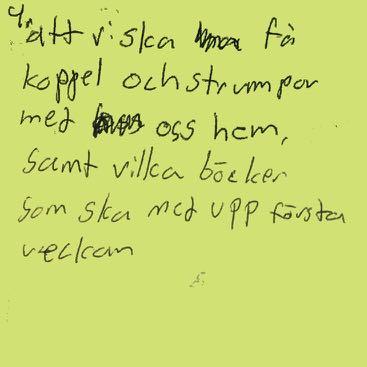 att vi ska få
koppel och strumpor
med oss hem,
samt vilka böcker
som ska med upp första
veckan